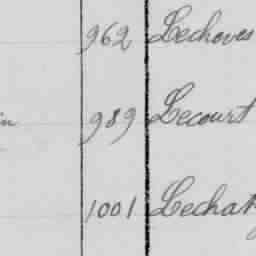 962 Lechoves
in 989 Lecourt
1001 Lechat